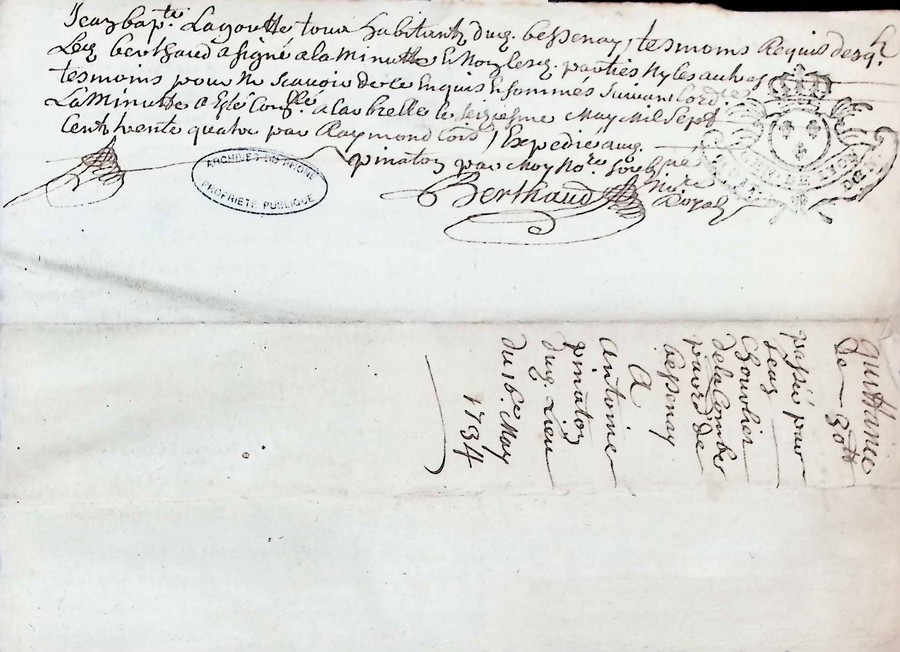 Jean bap.te Lagoutte tous habitants dud. bessenay, tesmoins Requis desq.ls
Led berthaud a signé a la Minutte E Non lesd. parties Ny les autres
tesmoins pour Ne scavoir de ce Enquis E sommes suivant Lord.ce
La Minutte a Esté Con.llée a Larbrelle le seiziesme May Mil Sept
Cents trente quatre par Raymond Com.s Expedié aud.
pinaton par Moy No.re sous.né
Berthaud No.re Royal
ARCHIVES DU RHONE
PROPRIÉTÉ PUBLIQUE
GEN. DE LYON
quittance
de 30 tt
passé par
Jean
Chouvlier
de la Combe
parr. de
besenay
A
antoine
pinaton
dud. Lieu
du 16e May
1734